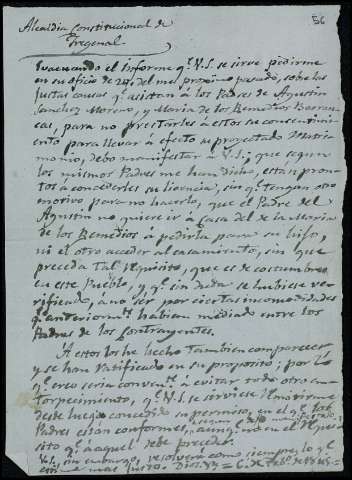 56
Alcaldia Constitucional de
Fregenal
Evacuando el Informe q.e V.S. se sirve pedirme
en su oficio de 24 del mes proximo pasado, sobre las
justas causas q.e asistan á los Padres de Agustin
Sanchez Moreno, y Maria de los Remedios Barran-
cas, para no prestarles á estos su consentimi-
ento para llevar á efecto su proyectado Matri-
monio, debo manifestar á V.S.; que segun
los mismos Padres me han dicho, están pron-
tos á concederles su licencia, sin q.e tengan otro
motivo para no hacerlo, que el Padre del
Agustin no quiere ir á casa del de la Maria
de los Remedios á pedirla para su hijo,
ni el otro acceder al casamiento, sin que
preceda tal requisito, que es de costumbre
en este Pueblo, y q.e sin duda se hubiese ve-
rificado, á no ser por ciertas incomodidades
q.e anteriorm.te habian mediado entre los
Padres de los contrayentes.
A estos les he hecho tambien comparecer
y se han ratificado en su proposito; por lo
q.e creo seria conven.te á evitar todo otro en-
torpecimiento, q.e V.S. se sirviese
desde luego concedido su permiso, en el q.e los
Padres están conformes, aunq.e no en el requi-
sito q.e á aquel debe preceder.
V.S. sin embargo, resolverá como siempre lo q.e
mas justo. Dios